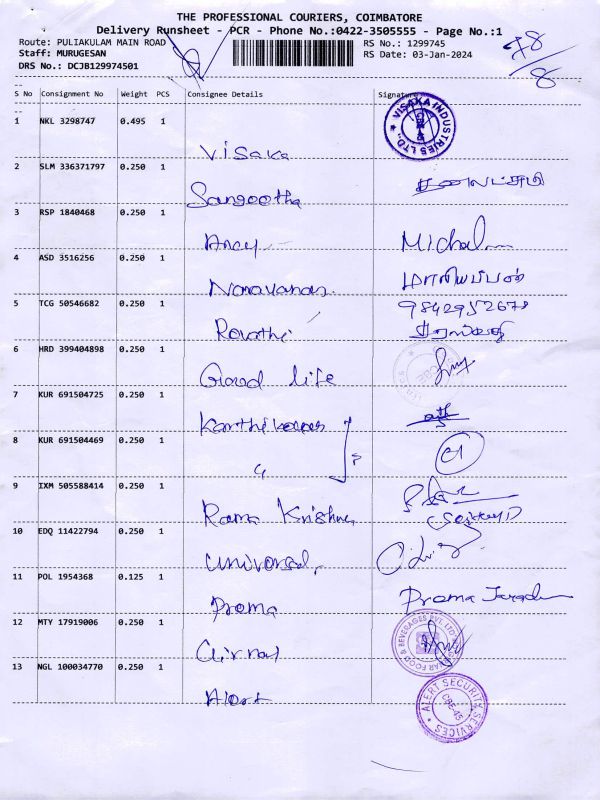 THE PROFESSIONAL COURIERS, COIMBATORE
Delivery Runsheet - PCR - Phone No.:0422-3505555 - Page No.:1
Route: PULIAKULAM MAIN ROAD RS No.: 1299745
Staff: MURUGESAN RS Date: 03-Jan-2024
DRS No.: DCJB129974501
78/8
S No Consignment No Weight PCS Consignee Details Signature
1 NKL 3298747 0.495 1
Visaka VISAKA INDUSTRIES LTD.,
2 SLM 336371797 0.250 1
Sangeetha தனலட்சுமி
3 RSP 1840468 0.250 1
Ancy Michal
4 ASD 3516256 0.250 1
Narayanan
5 TCG 50546682 0.250 1
9842952678
Revathi
6 HRD 399404898 0.250 1
Good life
7 KUR 691504725 0.250 1
8 KUR 691504469 0.250 1
9 IXM 505588414 0.250 1
Rama Krishna
10 EDQ 11422794 0.250 1
Universal
11 POL 1954368 0.125 1
Prema Prema
12 MTY 17919006 0.250 1
FOOD & BEVERAGES PVT LTD
13 NGL 100034770 0.250 1
Alert ALERT SECURITY SERVICES CBE-45